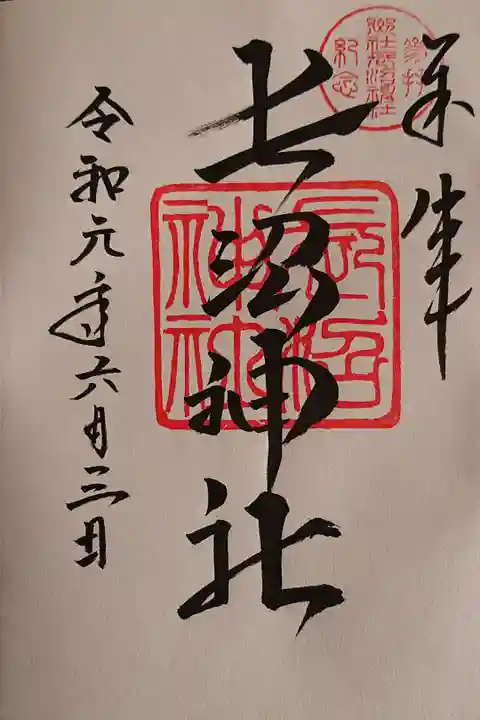 奉拝
長沼神社
令和元年六月三日
参拝
紀念
長沼神社